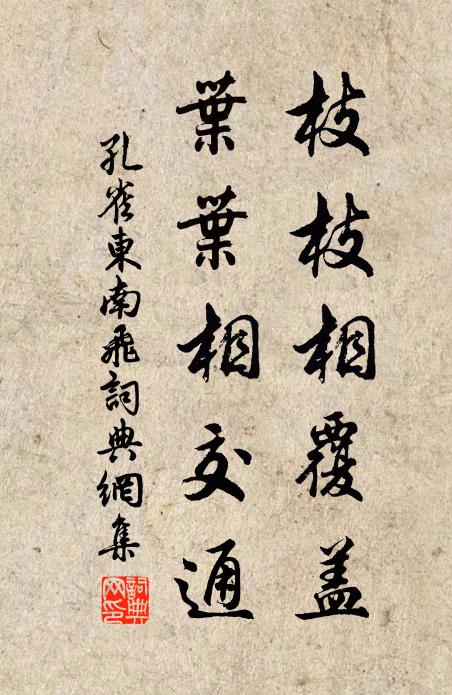 枝枝相覆盖
葉葉相交通
孔雀東南飛詞典網集
詞典網印